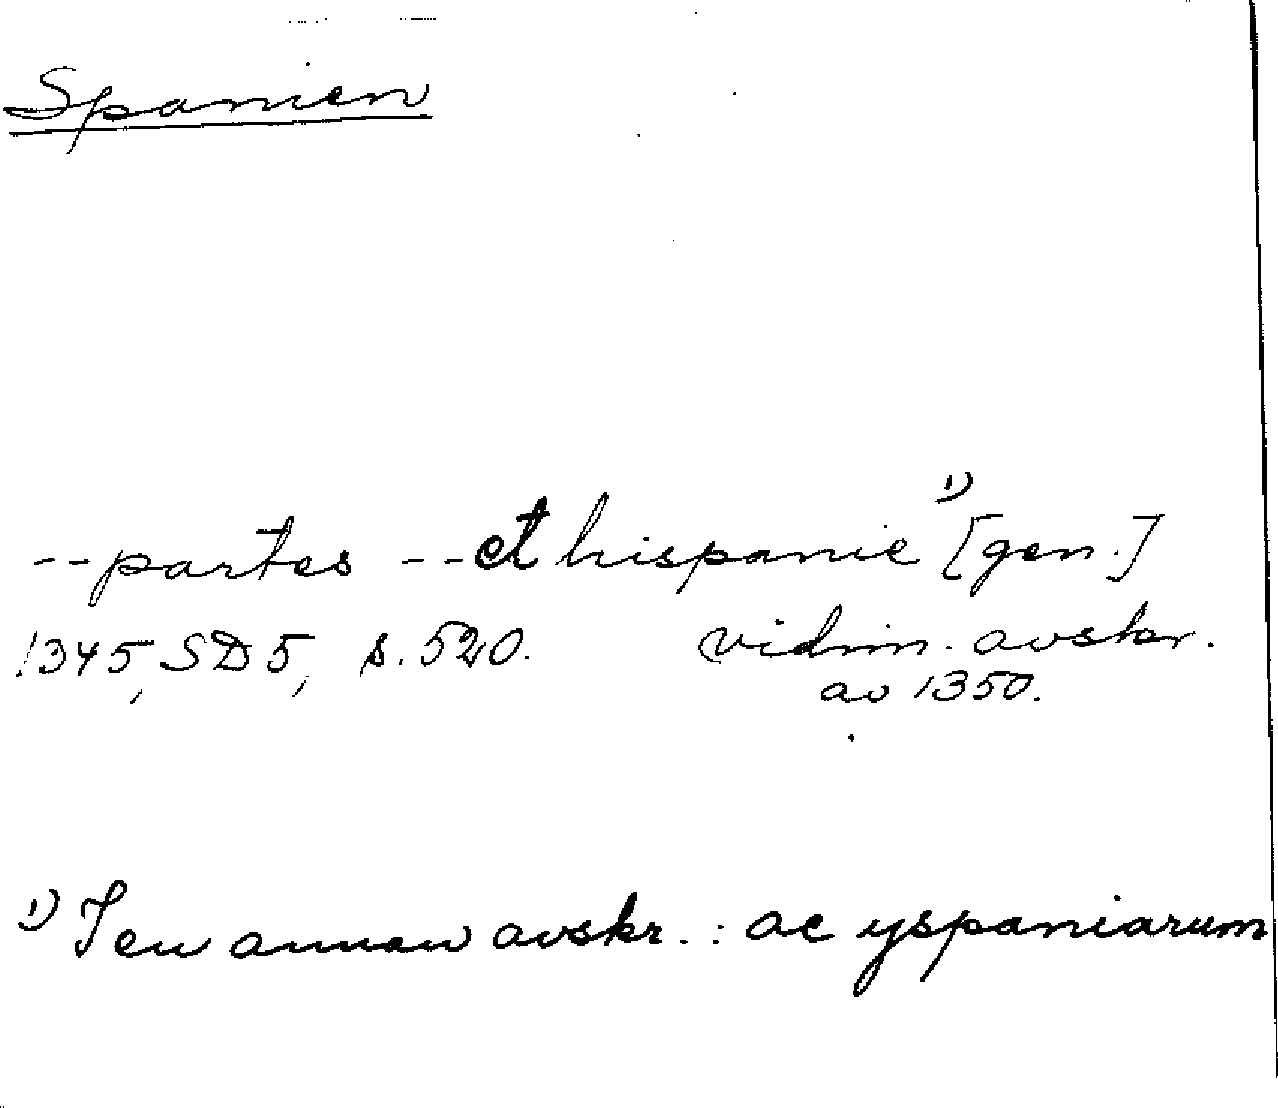 Spanien
-- partes -- et hispanie ¹) [gen.]
1345, SD 5, s. 520. vidim. avskr.
av 1350.
¹) I en annan avskr. : ac yspaniarum